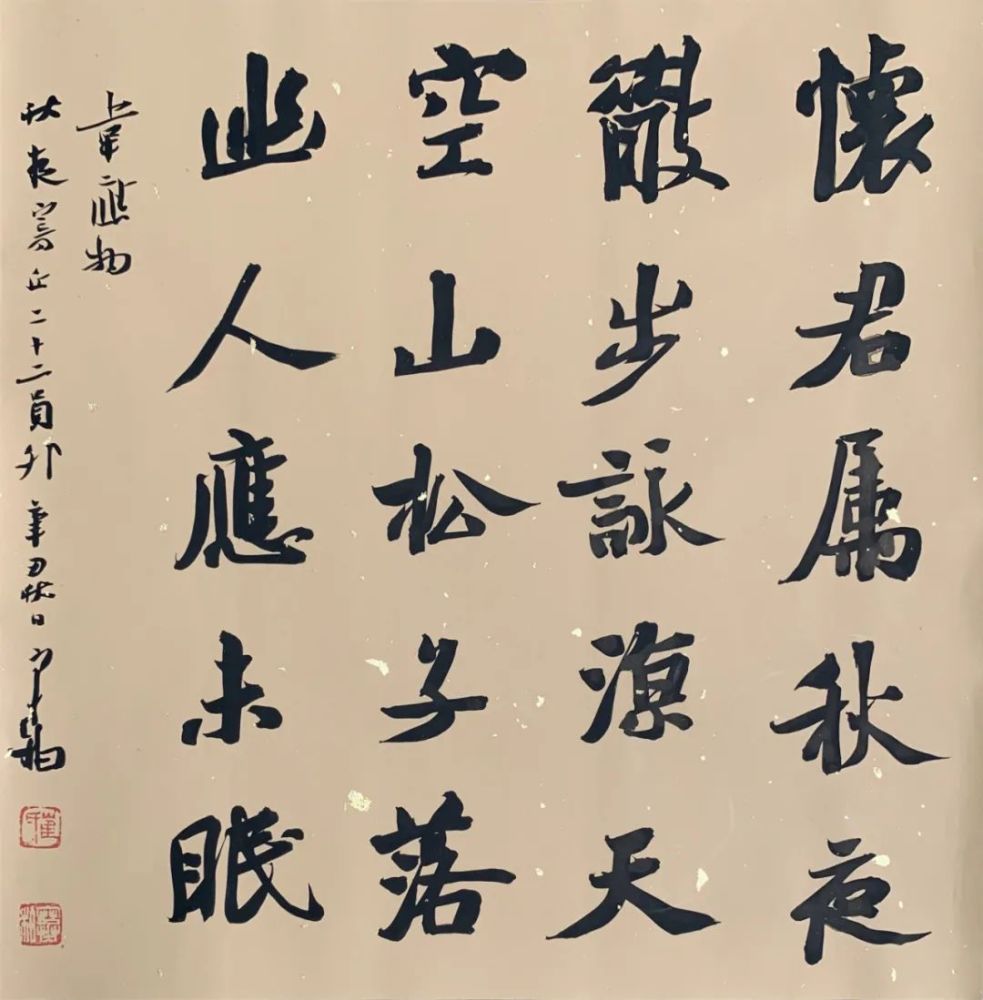 懷君属秋夜
散步詠涼天
空山松子落
幽人應未眠
韋應物
秋夜寄丘二十二員外 辛丑秋日